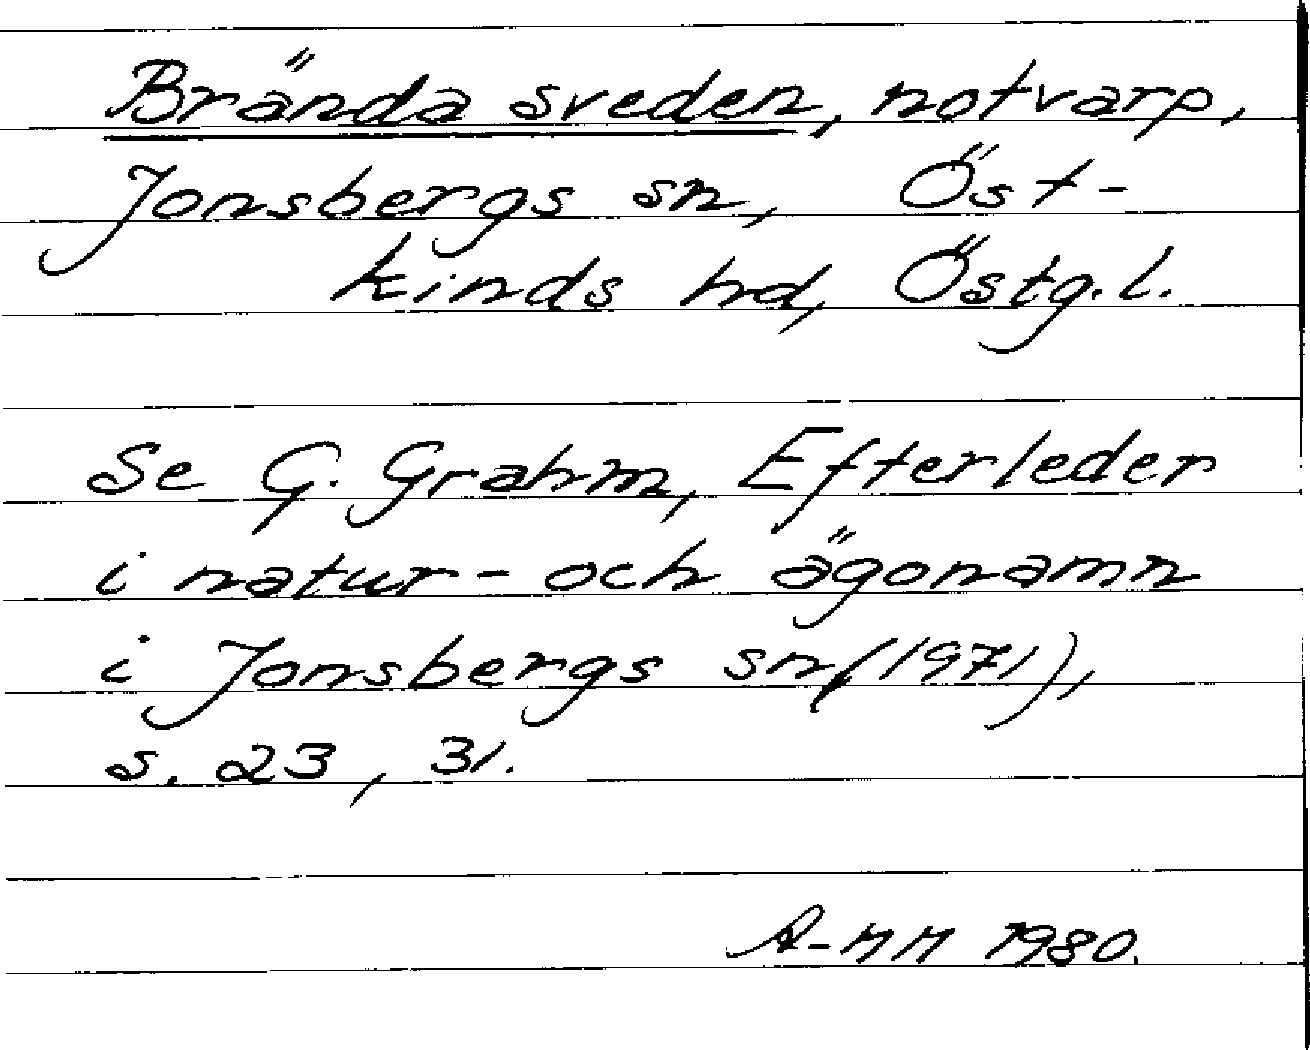 Brända sveden, notvarp,
Jonsbergs sn, Öst-
kinds hd, Östg.l.
Se G. Grahm, Efterleder
i natur- och ägonamn
i Jonsbergs sn (1971),
s. 23, 31.
A-MM 1980.